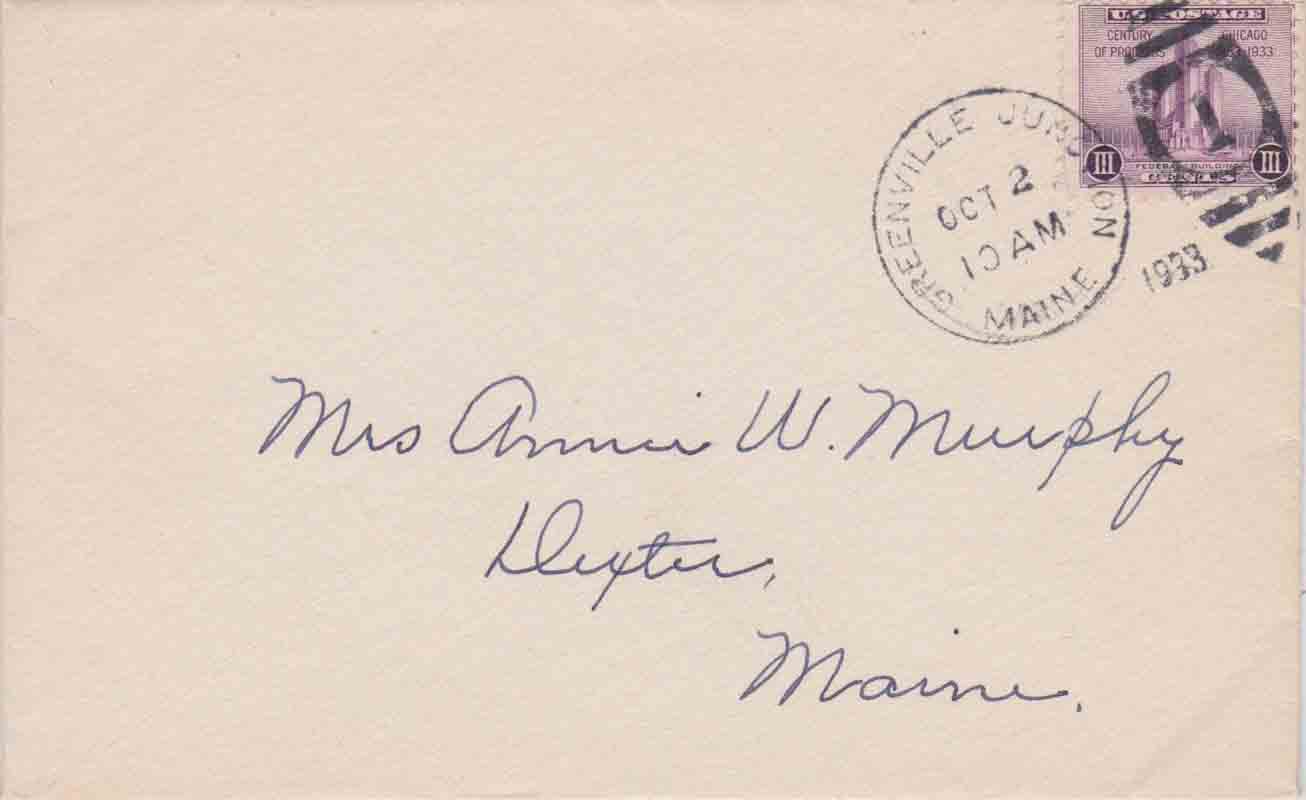 U.S. POSTAGE
CENTURY OF PROGRESS
CHICAGO 1833-1933
III III
FEDERAL BUILDING
CENTS
1
GREENVILLE JUNCTION
OCT 2
10 AM
MAINE
1933
Mrs Annie W. Murphy
Dexter,
Maine.